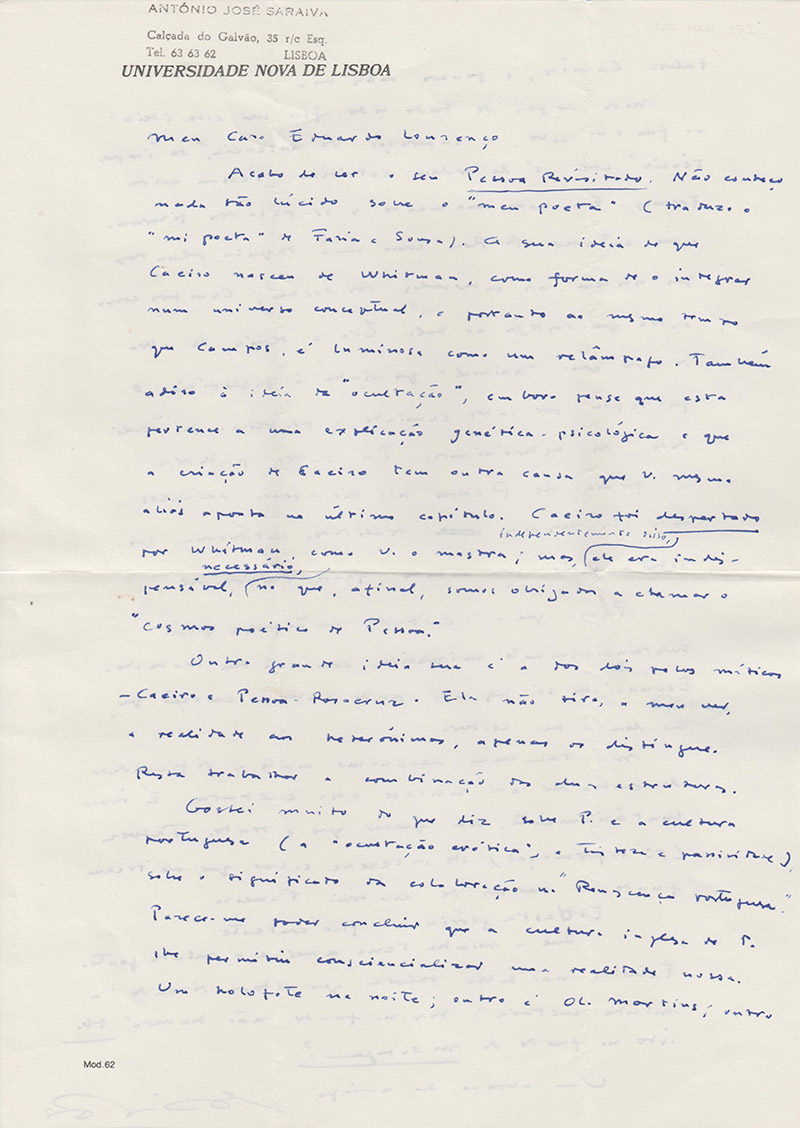 ANTÓNIO JOSÉ SARAIVA
Calçada do Galvão, 35 r/c Esq.
Tel. 63 63 62 LISBOA
UNIVERSIDADE NOVA DE LISBOA
Meu Caro Eduardo Lourenço
Acabo de ler o seu Pessoa Revisitado. Não conheço
nada tão lúcido sobre o "meu poeta" (traduzo o
"mi poeta" de Faria e Sousa). A sua ideia de que
Caeiro nasceu de Whitman, como forma de o integrar
num universo conceptual, e portanto ao mesmo tempo
que Campos, é luminosa como um relâmpago. Também
adiro à ideia da "ocultação", embora pense que esta
pertence a uma explicação genética-psicológica e que
a criação de Caeiro tem outra causa que V. mesmo
aliás aponta no último capítulo. Caeiro foi despertado
independentemente disso,
por Whitman, como V. o mostra; mas, ele era indis-
necessário,
pensável, no que, afinal, somos obrigados a chamar o
"cosmos poético de Pessoa."
Outra grande ideia sua é a dos dois polos míticos
- Caeiro e Pessoa-Rosacruz. Ela não tira, a meu ver,
a realidade aos heterónimos, apenas os distingue.
Resta trabalhar a combinação das duas estruturas.
Gostei muito do que diz sobre P. e a cultura
portuguesa (a "ocultação erótica", a tristeza e passividade),
sobre o significado da colaboração na "Renascença portuguesa."
Parece-me poder concluir que a cultura inglesa de P.
lhe permitiu consciencializar uma realidade nossa.
Um holofote na noite; outro é Ol. Martins; outro
Mod.62